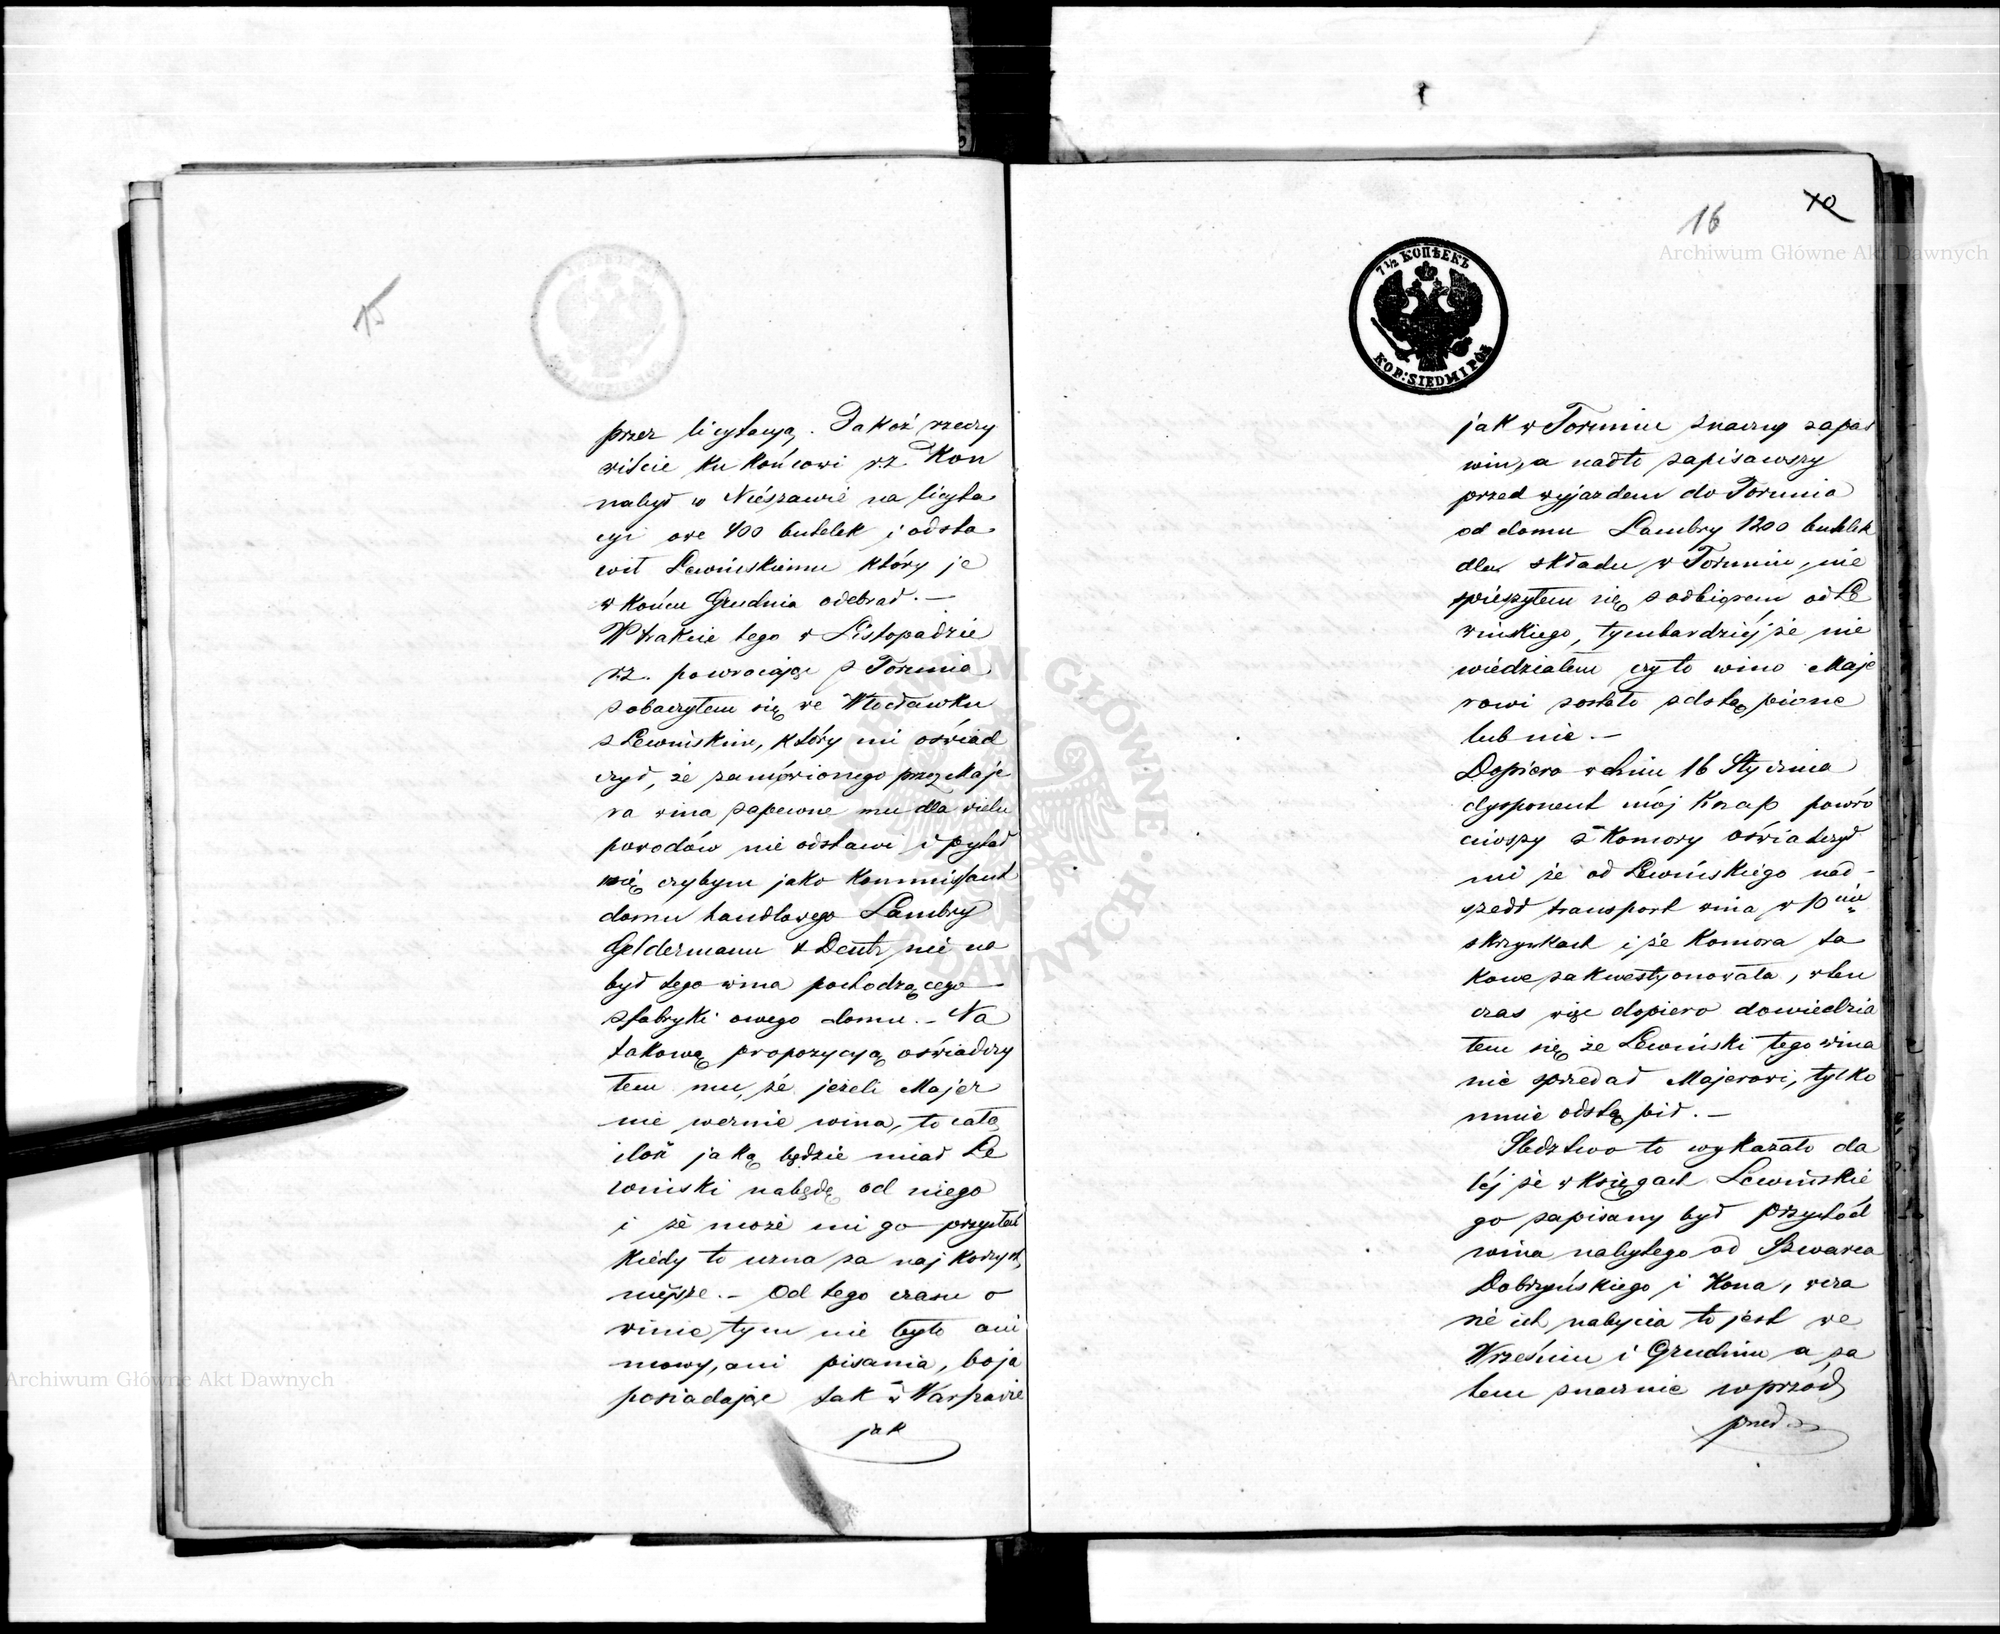 15
przez licytacyą. Jakoż rzeczy
wiście ku końcowi r.z. Kon
nabył w Nieszawie na licyta
cyi owe 400 butelek i odsta
wił Lewińskiemu który je
w końcu Grudnia odebrał. —
W trakcie tego w Listopadzie
r.z. powracając z Torunia
zobaczyłem się we Włocławku
z Lewińskim, który mi oświad
czył, że zamówionego przez Maje
ra wina zapewne mu dla wielu
powodów nie odstawi i pytał
się czybym jako Kommissant
domu handlowego Lambry
Geldermann & Deutz nie na
był tego wina pochodzącego
z fabryki owego domu. — Na
takową propozycyą oświadczy
łem mu, że jeżeli Majer
nie weźmie wina, to całą
ilość jaką będzie miał Le
wiński nabędę od niego
i że może mi go przysłać
kiedy to uzna za najkorzyst
niejsze. — Od tego czasu o
winie tym nie było ani
mowy, ani pisania, bo ja
posiadając tak w Warszawie
jak
16
10
7½ КОПѢЕКЪ
KOP: SIEDM I PÓŁ
jak w Toruniu znaczny zapas
win, a nadto zapisawszy
przed wyjazdem do Torunia
od domu Lambry 1200 butelek
dla składu w Toruniu, nie
spieszyłem się z odbiorem od Le
wińskiego, tymbardziéj że nie
wiedziałem czy to wino Maje
rowi zostało odstąpione
lub nie. —
Dopiero w dniu 16 Stycznia
dysponent mój Knap powró
ciwszy z Komory oświadczył
mi że od Lewińskiego nad-
szedł transport wina w 10ciu
skrzynkach i że Komora ta
kowe zakwestyonowała, w ten
czas więc dopiero dowiedzia
łem się że Lewiński tego wina
nie sprzedał Majerowi, tylko
mnie odstąpił. —
Śledztwo to wykazało da
léj że w księgach Lewińskie
go zapisany był przychód
wina nabytego od Szwarca
Dobrzyńskiego i Kona, w cza
sie ich nabycia to jest we
Wrześniu i Grudniu a za
tem znacznie wprzód
przed
Archiwum Główne Akt Dawnych
Archiwum Główne Akt Dawnych
ARCHIWUM GŁÓWNE AKT DAWNYCH